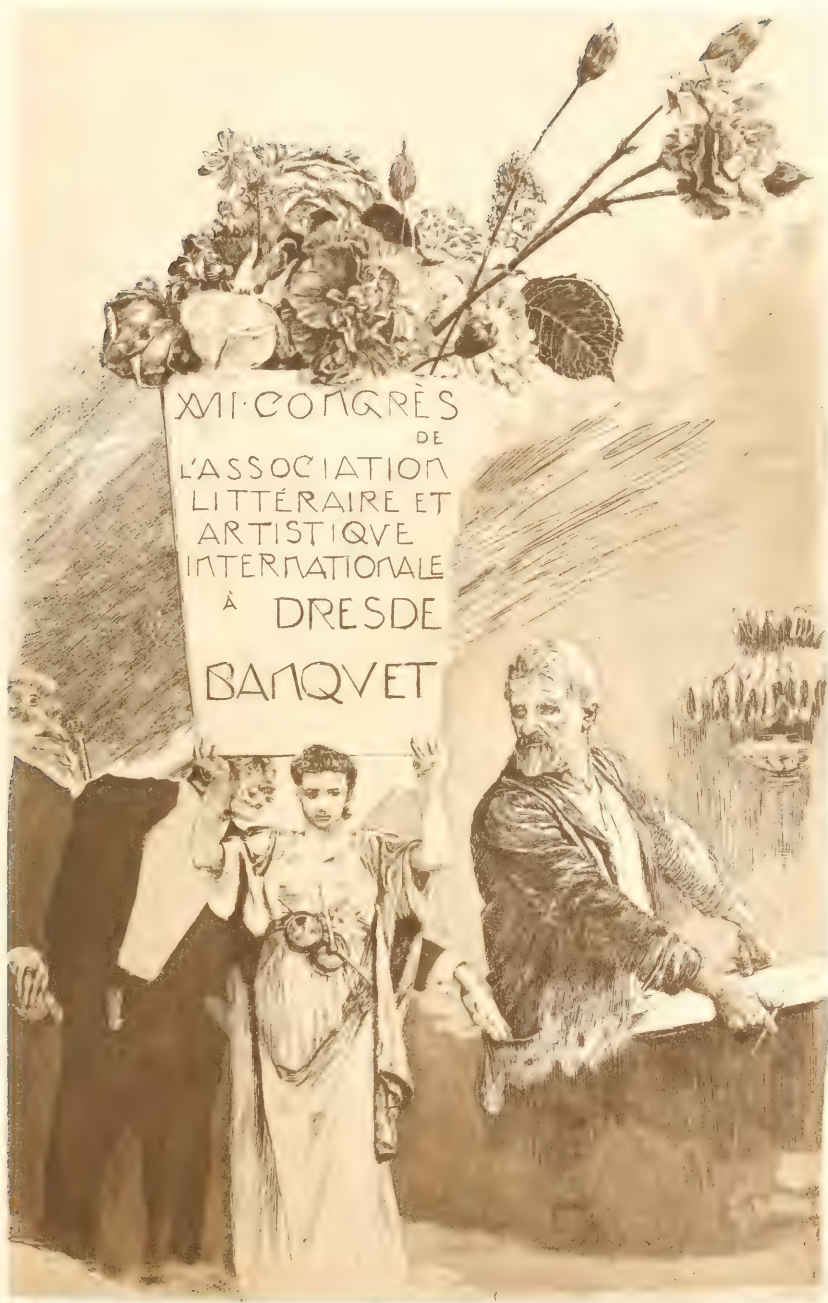 XVII·CONGRÈS
DE
L'ASSOCIATION
LITTÉRAIRE ET
ARTISTIQVE
INTERNATIONALE
À DRESDE
BANQVET